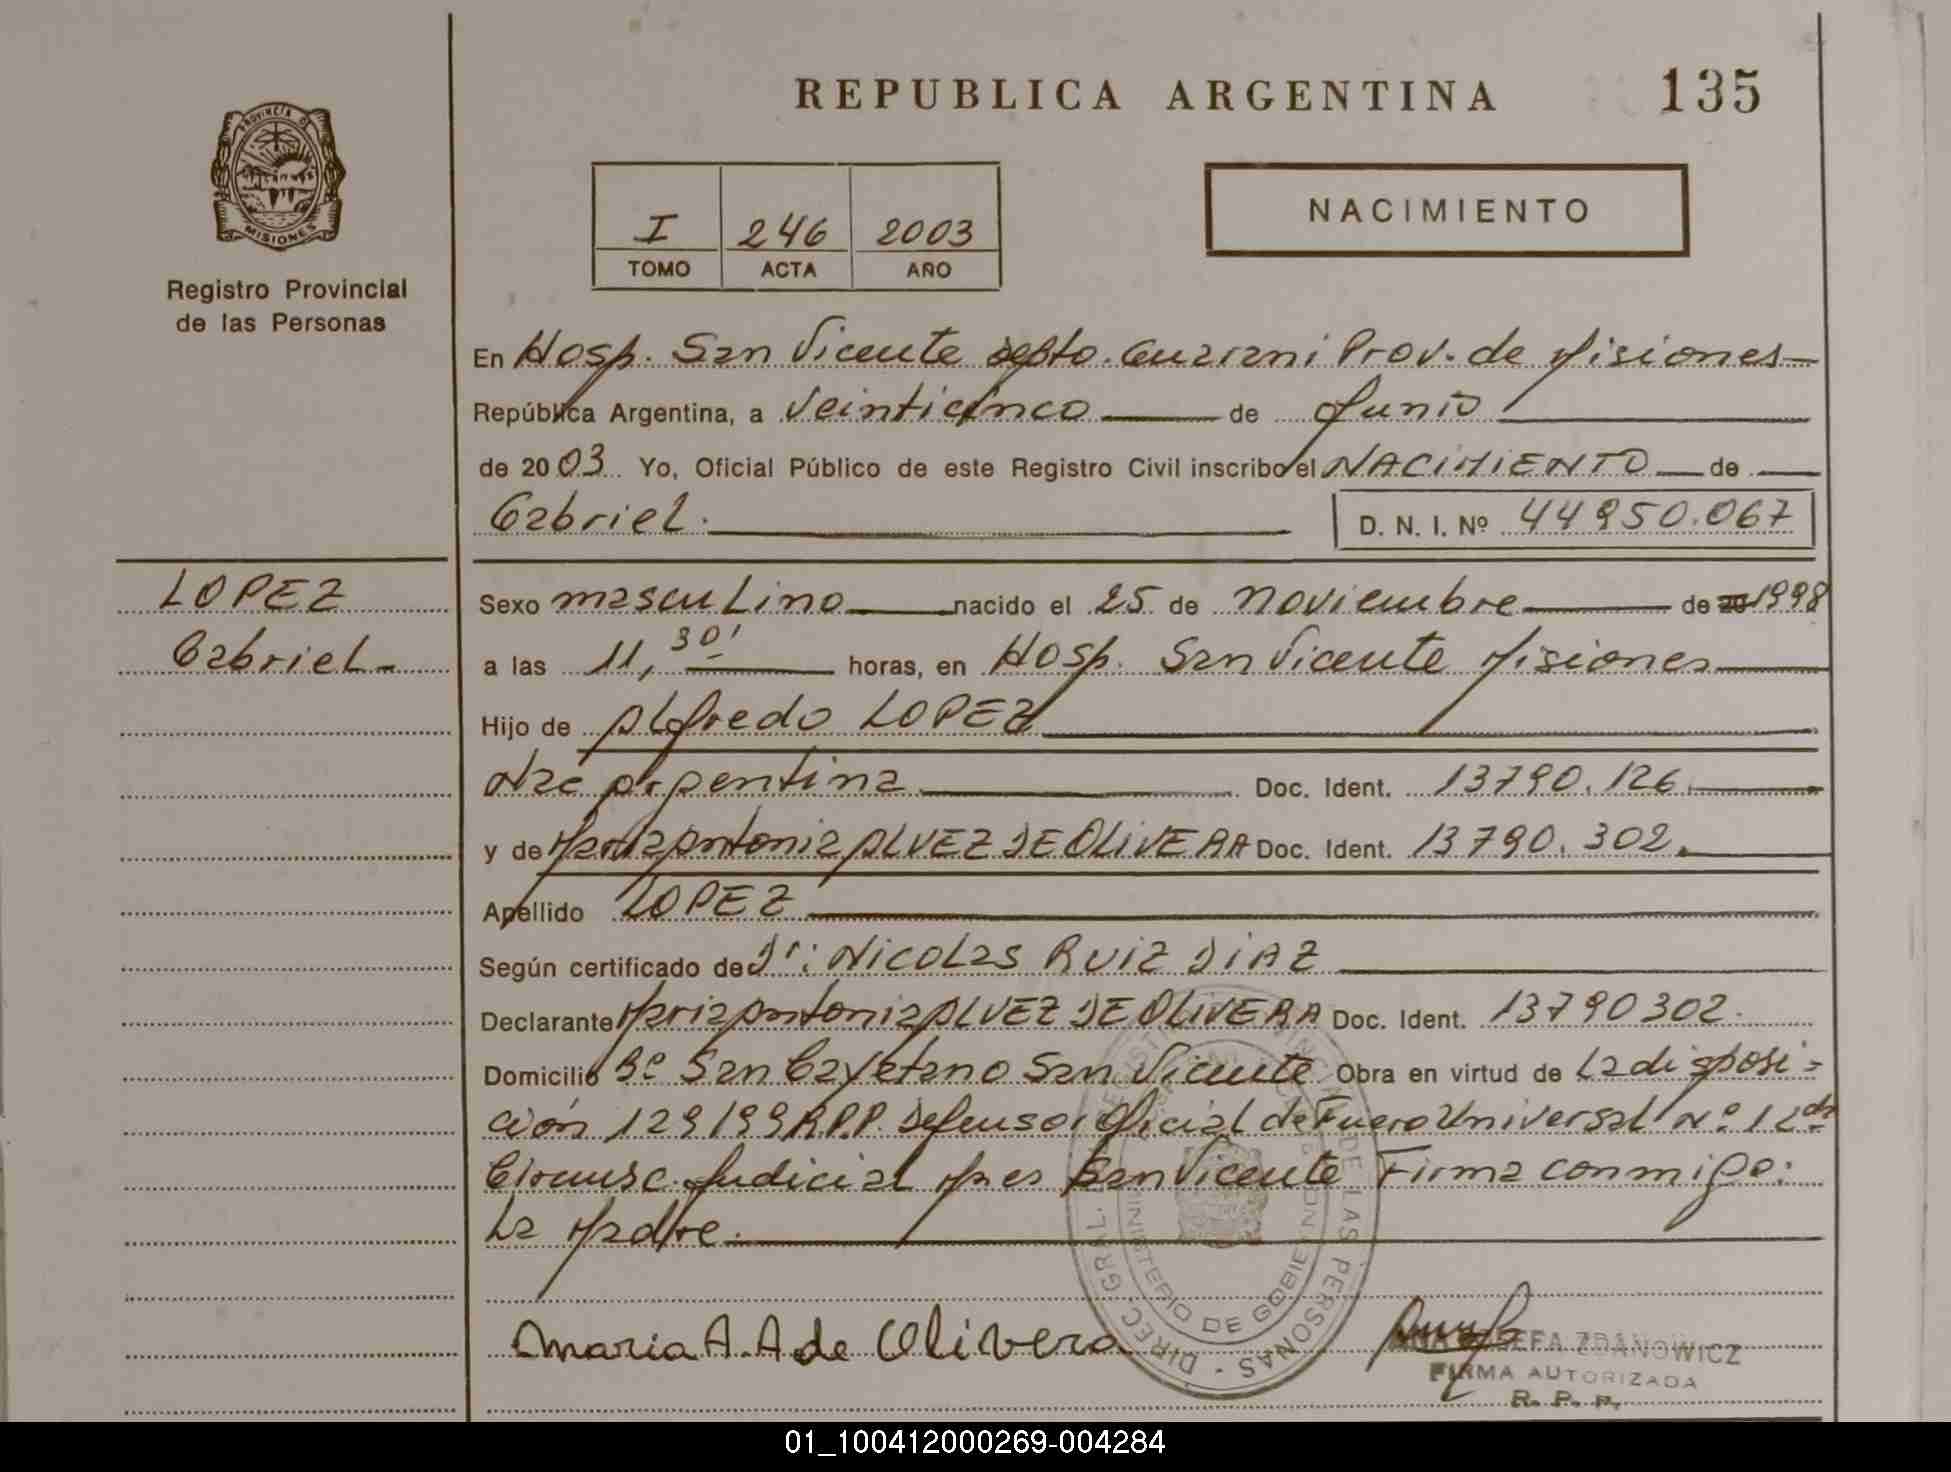 REPUBLICA ARGENTINA 135
PROVINCIA DE
MISIONES
Registro Provincial
de las Personas
I 246 2003
TOMO ACTA AÑO
NACIMIENTO
En Hosp. San Vicente depto. Guarani Prov. de Misiones
República Argentina, a Veinticinco de Junio
de 2003 Yo, Oficial Público de este Registro Civil inscribo el NACIMIENTO de
Gabriel. D. N. I. Nº 44950.067
LOPEZ
Gabriel
Sexo masculino nacido el 25 de noviembre de 20 1998
a las 11,30' horas, en Hosp. San Vicente Misiones
Hijo de Alfredo LOPEZ
Nac Argentina Doc. Ident. 13790.126
y de Maria Antonia ALVEZ DE OLIVERA Doc. Ident. 13790.302.
Apellido LOPEZ
Según certificado de Dr: Nicolas RUIZ DIAZ
Declarante Maria Antonia ALVEZ DE OLIVERA Doc. Ident. 13790302.
Domicilio Bº San Cayetano San Vicente Obra en virtud de La disposi-
ción 129/99 R.P.P. Defensor Oficial de Fuero Universal Nº 1 2da
Circunsc. Judicial Mnes San Vicente Firma conmigo:
La Madre.
Maria A. A de Olivera
DIREC. GRAL. DE LAS PERSONAS
MINISTERIO DE GOBIERNO
JOSEFA ZDANOWICZ
FIRMA AUTORIZADA
R. P. P.
01_100412000269-004284